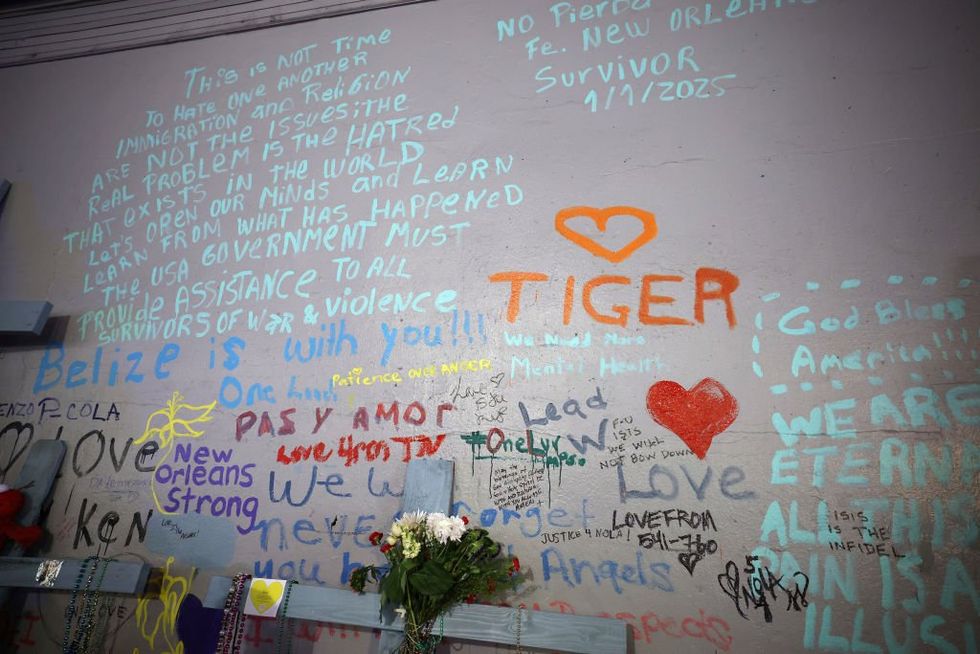 THIS IS NOT TIME
TO HATE ONE ANOTHER
IMMIGRATION and Religion
ARE NOT THE ISSUES;THE
REAL PROBLEM IS THE HATRED
THAT EXISTS IN THE WORLD
LET'S OPEN OUR MINDS and LEARN
LEARN FROM WHAT HAS HAPPENED
THE USA GOVERNMENT MUST
PROVIDE ASSISTANCE TO ALL
SURVIVORS OF WAR & violence
No Pierda
Fe. NEW ORLEANS
SURVIVOR
1/1/2025
TIGER
We Need More
Mental Health
God Bless
America!!!
Belize is with you!!!
One
Patience over ANGER
ENZO P- COLA
LOVE
KEN
New
Orleans
Strong
PAS Y AMOR
Love 4rm TN
We
never forget
you Angels
#OneLyr
Lead
W
F-U
ISIS
WE WILL
NOT BOW DOWN
Love
LOVE FROM
541-760
JUSTICE 4 NOLA!
NOLA
WE ARE
ETERN
ALL THIS
PAIN IS A
ILLUS
ISIS
IS THE
INFIDEL